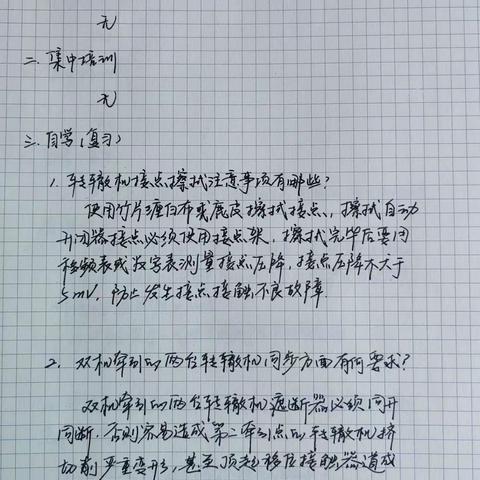 无
二、集中培训
无
三、自学(复习)
1、转辙机接点擦拭注意事项有哪些?
使用竹片缠白布或鹿皮擦拭接点,擦拭自动
开闭器接点必须使用接点架,擦拭完毕后要用
移频表或数字表测量接点压降,接点压降不大于
5mV,防止发生接点接触不良故障.
2、双机牵引的两台转辙机同步方面有何要求?
双机牵引的两台转辙机遮断器必须同开
同断.否则容易造成第二牵引点的转辙机挤
切削严重变形,甚至顶起移位接触器造成